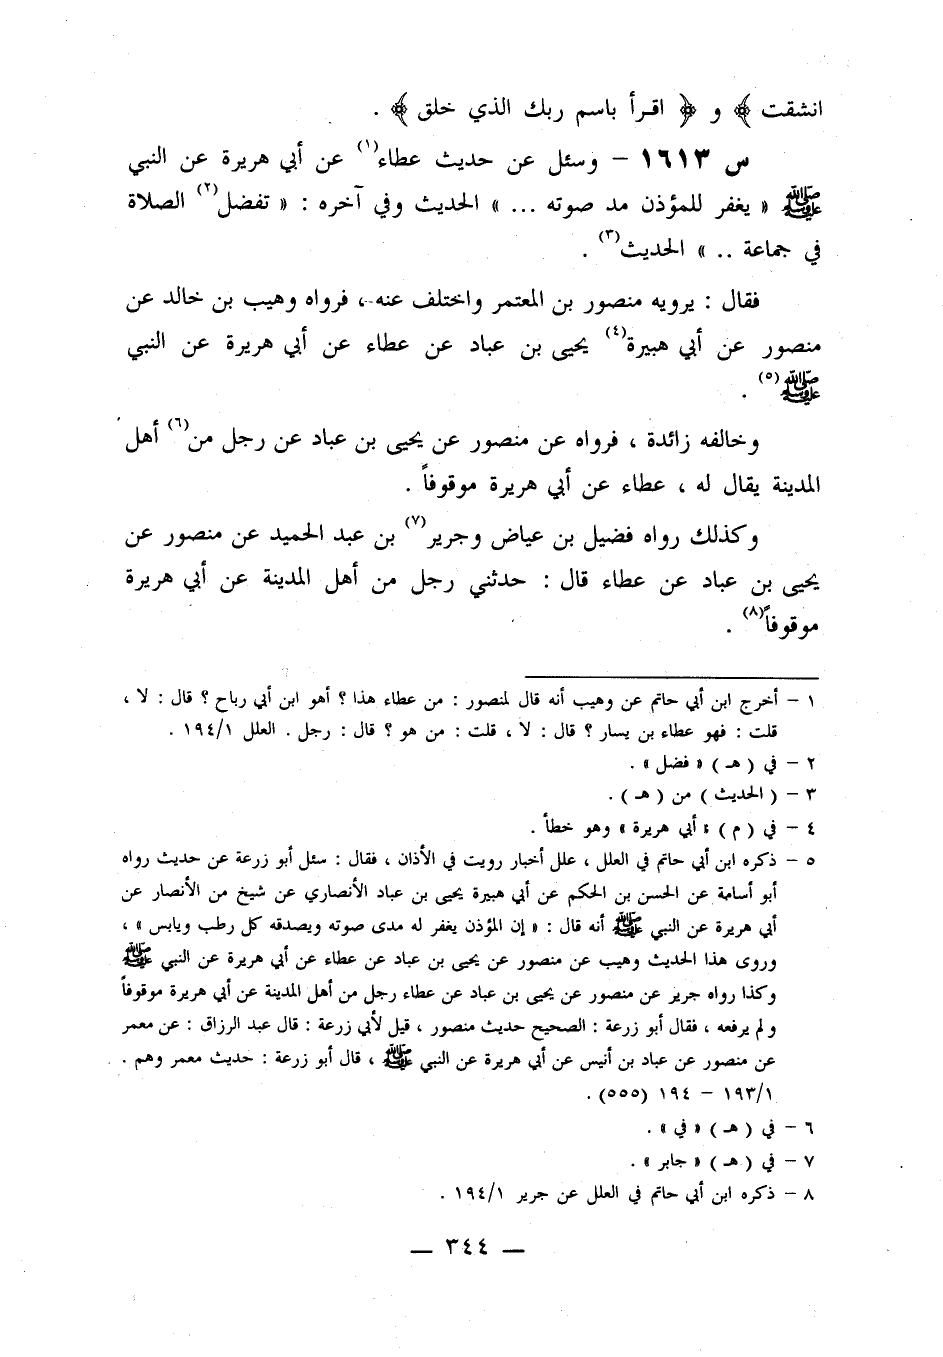 انشقت ﴾ و ﴿ اقرأ باسم ربك الذي خلق ﴾ .
س ١٦١٣ – وسئل عن حديث عطاء(١) عن أبي هريرة عن النبي
ﷺ « يغفر للمؤذن مد صوته ... » الحديث وفي آخره : « تفضل(٢) الصلاة
في جماعة .. » الحديث(٣) .
فقال : يرويه منصور بن المعتمر واختلف عنه ، فرواه وهيب بن خالد عن
منصور عن أبي هبيرة(٤) يحيى بن عباد عن عطاء عن أبي هريرة عن النبي
ﷺ(٥) .
وخالفه زائدة ، فرواه عن منصور عن يحيى بن عباد عن رجل من(٦) أهل
المدينة يقال له ، عطاء عن أبي هريرة موقوفاً .
وكذلك رواه فضيل بن عياض وجرير(٧) بن عبد الحميد عن منصور عن
يحيى بن عباد عن عطاء قال : حدثني رجل من أهل المدينة عن أبي هريرة
موقوفاً(٨) .
١ – أخرج ابن أبي حاتم عن وهيب أنه قال لمنصور : من عطاء هذا ؟ أهو ابن أبي رباح ؟ قال : لا ،
قلت : فهو عطاء بن يسار ؟ قال : لا ، قلت : من هو ؟ قال : رجل . العلل ١٩٤/١ .
٢ – في ( هـ ) « فضل » .
٣ – ( الحديث ) من ( هـ ) .
٤ – في ( م ) « أبي هريرة » وهو خطأ .
٥ – ذكره ابن أبي حاتم في العلل ، علل أخبار رويت في الأذان ، فقال : سئل أبو زرعة عن حديث رواه
أبو أسامة عن الحسن بن الحكم عن أبي هبيرة يحيى بن عباد الأنصاري عن شيخ من الأنصار عن
أبي هريرة عن النبي ﷺ أنه قال : « إن المؤذن يغفر له مدى صوته ويصدقه كل رطب ويابس » ،
وروى هذا الحديث وهيب عن منصور عن يحيى بن عباد عن عطاء عن أبي هريرة عن النبي ﷺ
وكذا رواه جرير عن منصور عن يحيى بن عباد عن عطاء رجل من أهل المدينة عن أبي هريرة موقوفاً
ولم يرفعه ، فقال أبو زرعة : الصحيح حديث منصور ، قيل لأبي زرعة : قال عبد الرزاق : عن معمر
عن منصور عن عباد بن أنيس عن أبي هريرة عن النبي ﷺ ، قال أبو زرعة : حديث معمر وهم .
١٩٣/١ – ١٩٤ (٥٥٥) .
٦ – في ( هـ ) « في » .
٧ – في ( هـ ) « جابر » .
٨ – ذكره ابن أبي حاتم في العلل عن جرير ١٩٤/١ .
— ٣٤٤ —